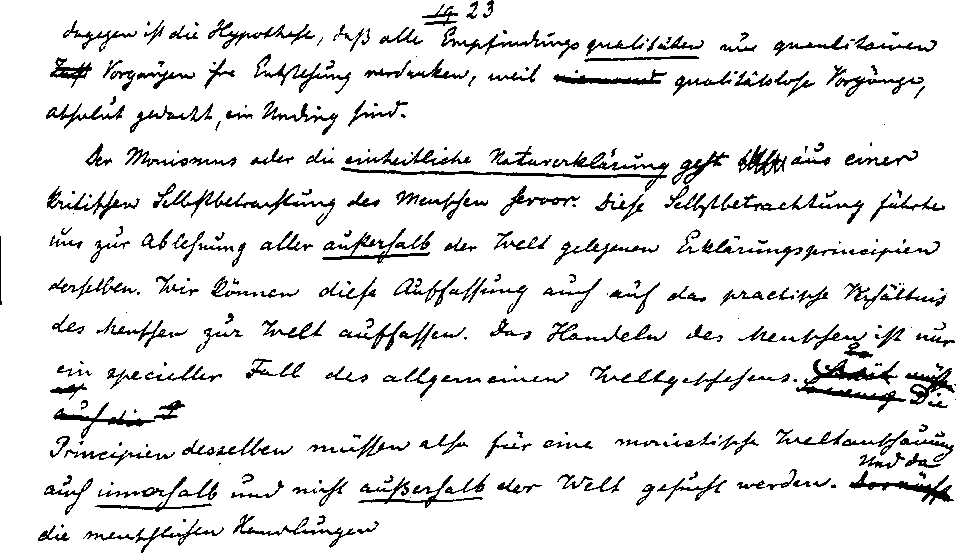 19 23
dagegen ist die Hypothese, daß alle Empfindungsqualitäten nur quantitativen
Vorgängen ihre Entstehung verdanken, weil qualitätslose Vorgänge,
absolut gedacht, ein Unding sind.
Der Monismus oder die einheitliche Naturerklärung geht aus einer
kritischen Selbstbetrachtung des Menschen hervor. Diese Selbstbetrachtung führte
uns zur Ablehnung aller außerhalb der Welt gelegenen Erklärungsprincipien
derselben. Wir können diese Auffassung auch auf das practische Verhältnis
des Menschen zur Welt auffassen. Das Handeln des Menschen ist nur
ein specieller Fall des allgemeinen Weltgeschehens. Die
auch die
Principien desselben müssen also für eine monistische Weltanschauung
Und da
auch innerhalb und nicht außerhalb der Welt gesucht werden.
die menschlichen Handlungen